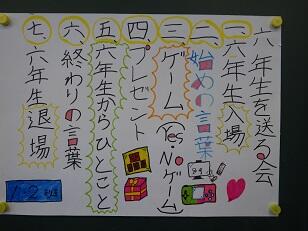 六年生を送る会
一、六年生入場
二、始めの言葉
三、ゲーム(Yes・Noゲーム)
四、プレゼント
五、六年生からひとこと
六、終わりの言葉
七、六年生退場